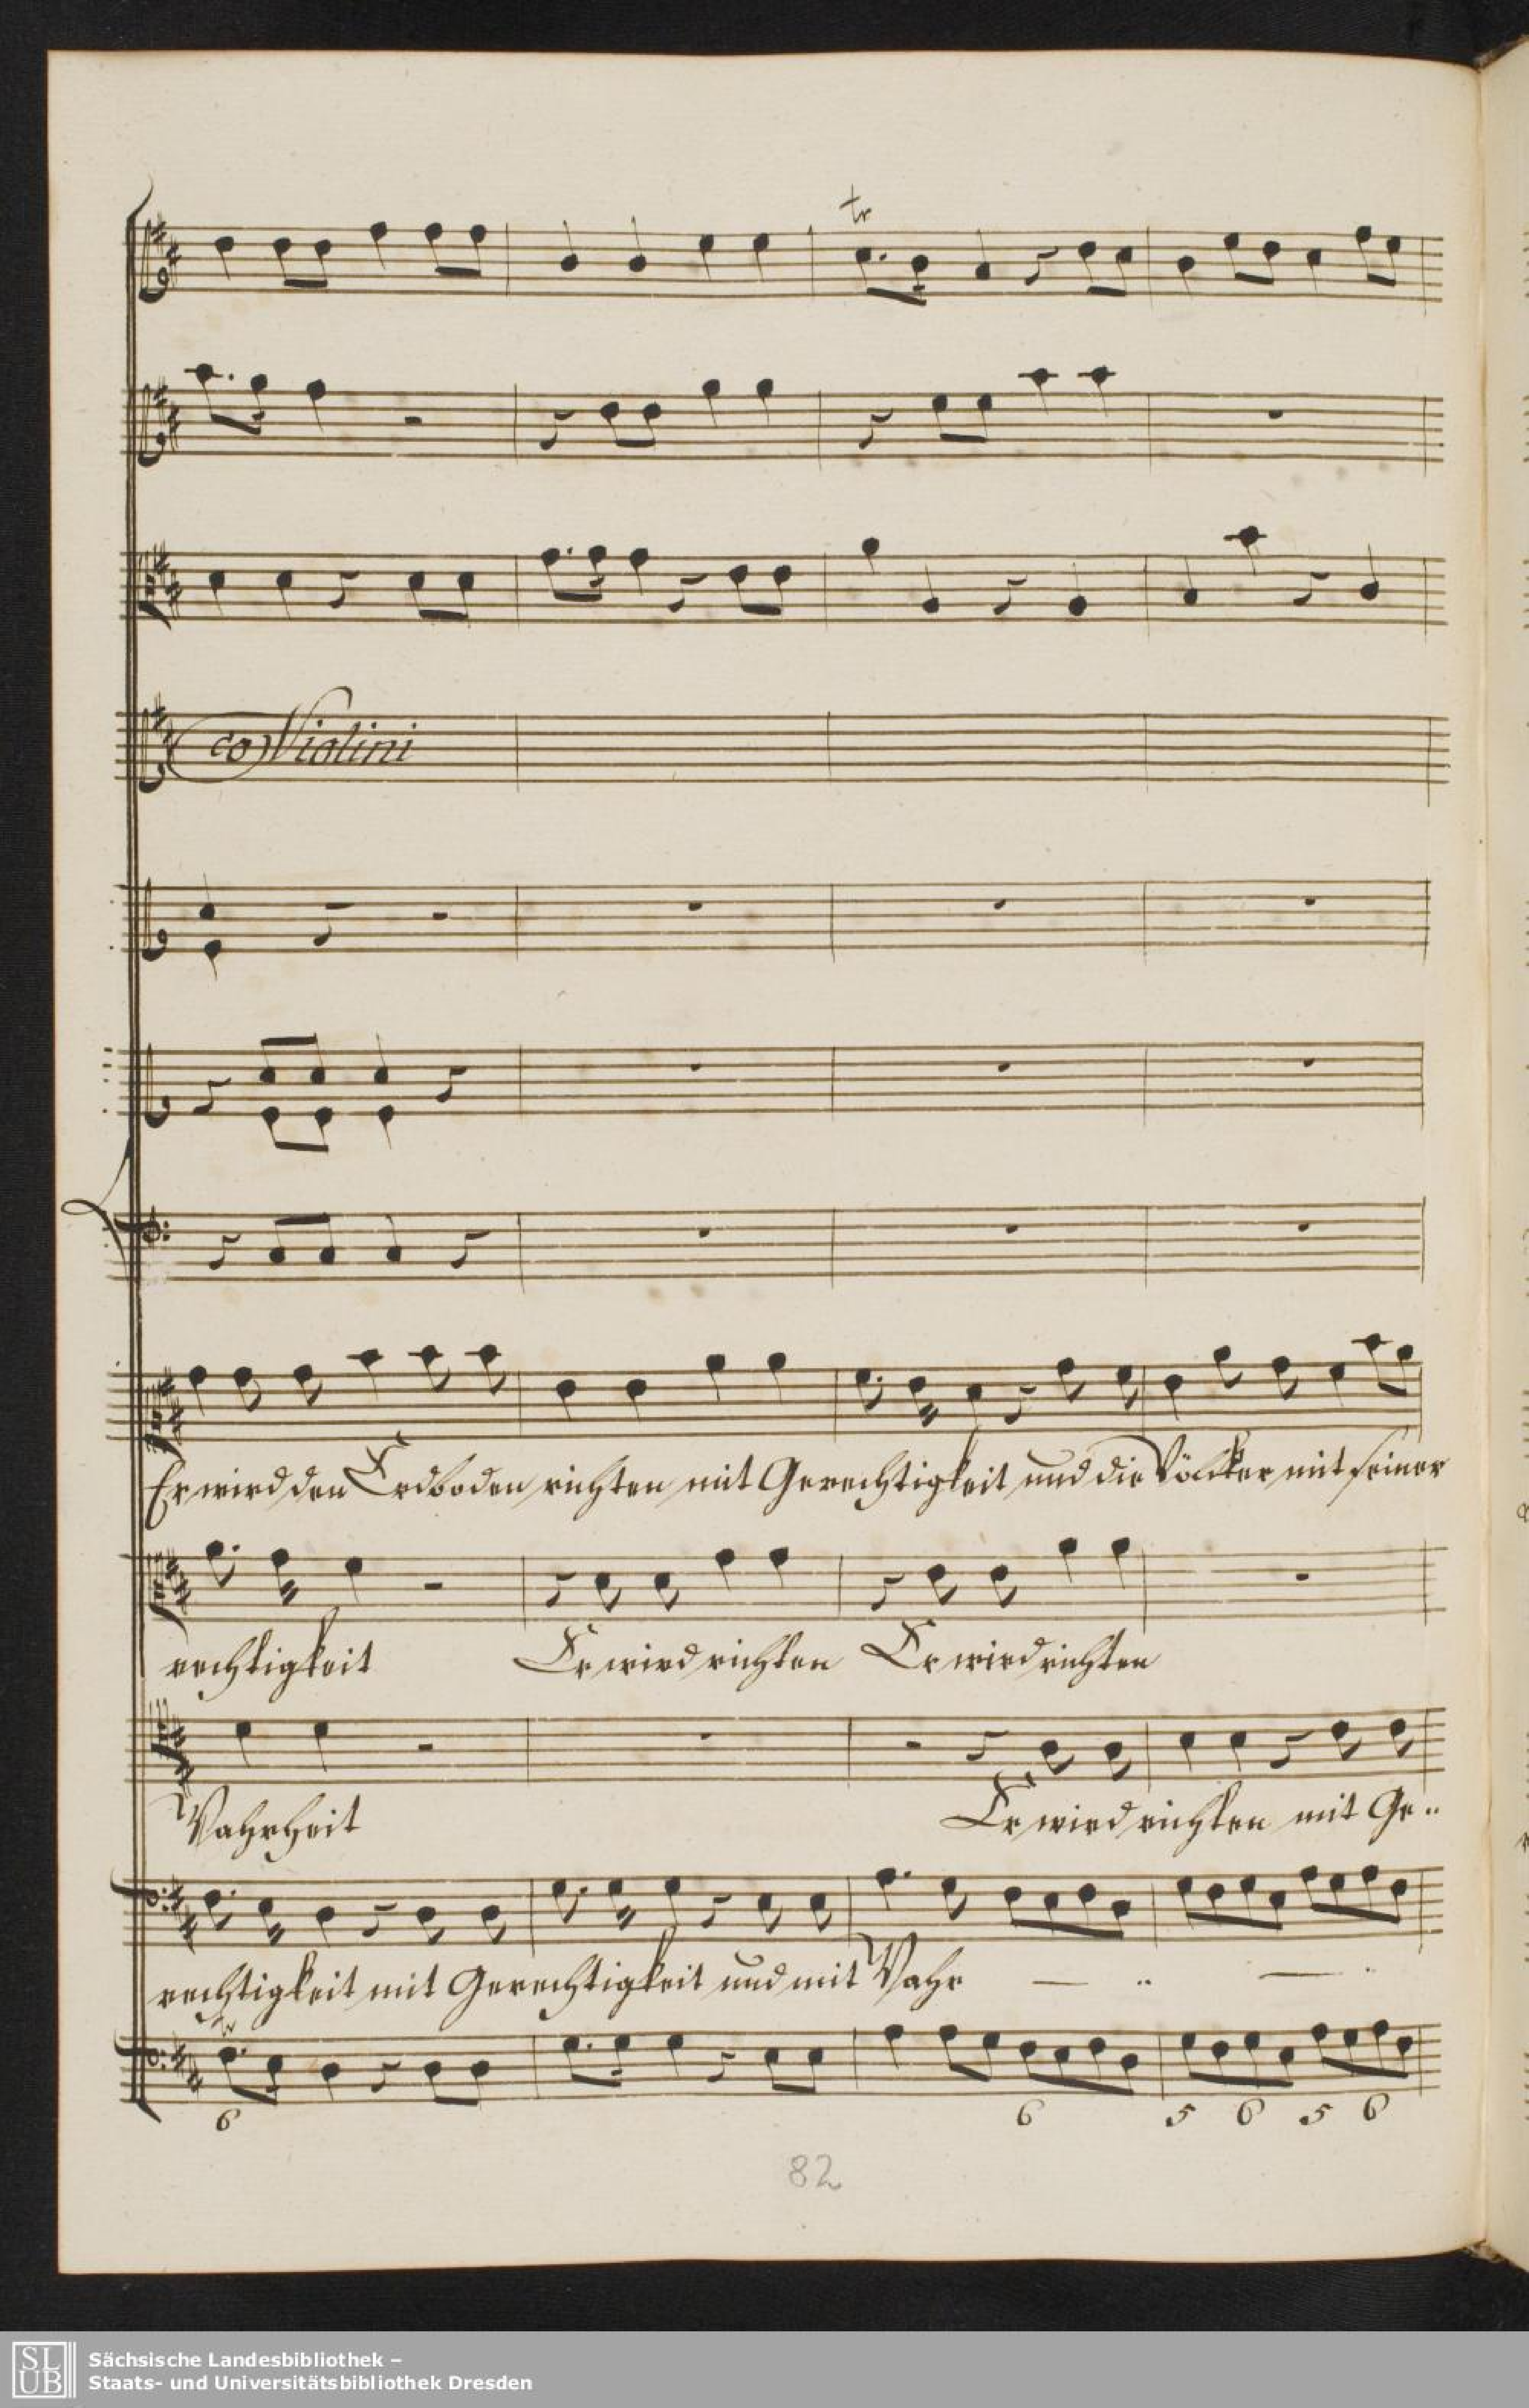 tr
co Violini
Er wird den Erdboden richten mit Gerechtigkeit und die Völcker mit seiner
rechtigkeit Er wird richten Er wird richten
Wahrheit Er wird richten mit Ge..
rechtigkeit mit Gerechtigkeit und mit Wahr — .. — .
6 6 5 6 5 6
82
SLUB Sächsische Landesbibliothek –
Staats- und Universitätsbibliothek Dresden